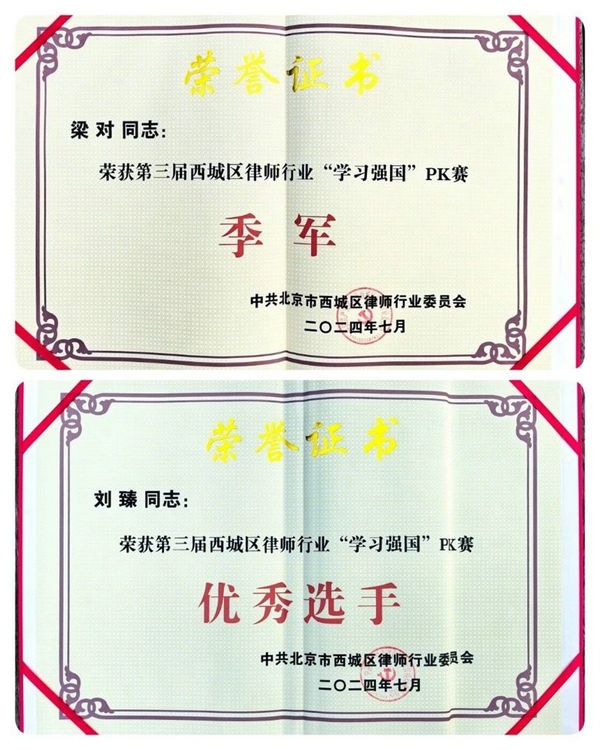 荣誉证书
梁对同志：
荣获第三届西城区律师行业“学习强国”PK赛
季军
中共北京市西城区律师行业委员会
二〇二四年七月
荣誉证书
刘臻同志：
荣获第三届西城区律师行业“学习强国”PK赛
优秀选手
中共北京市西城区律师行业委员会
二〇二四年七月